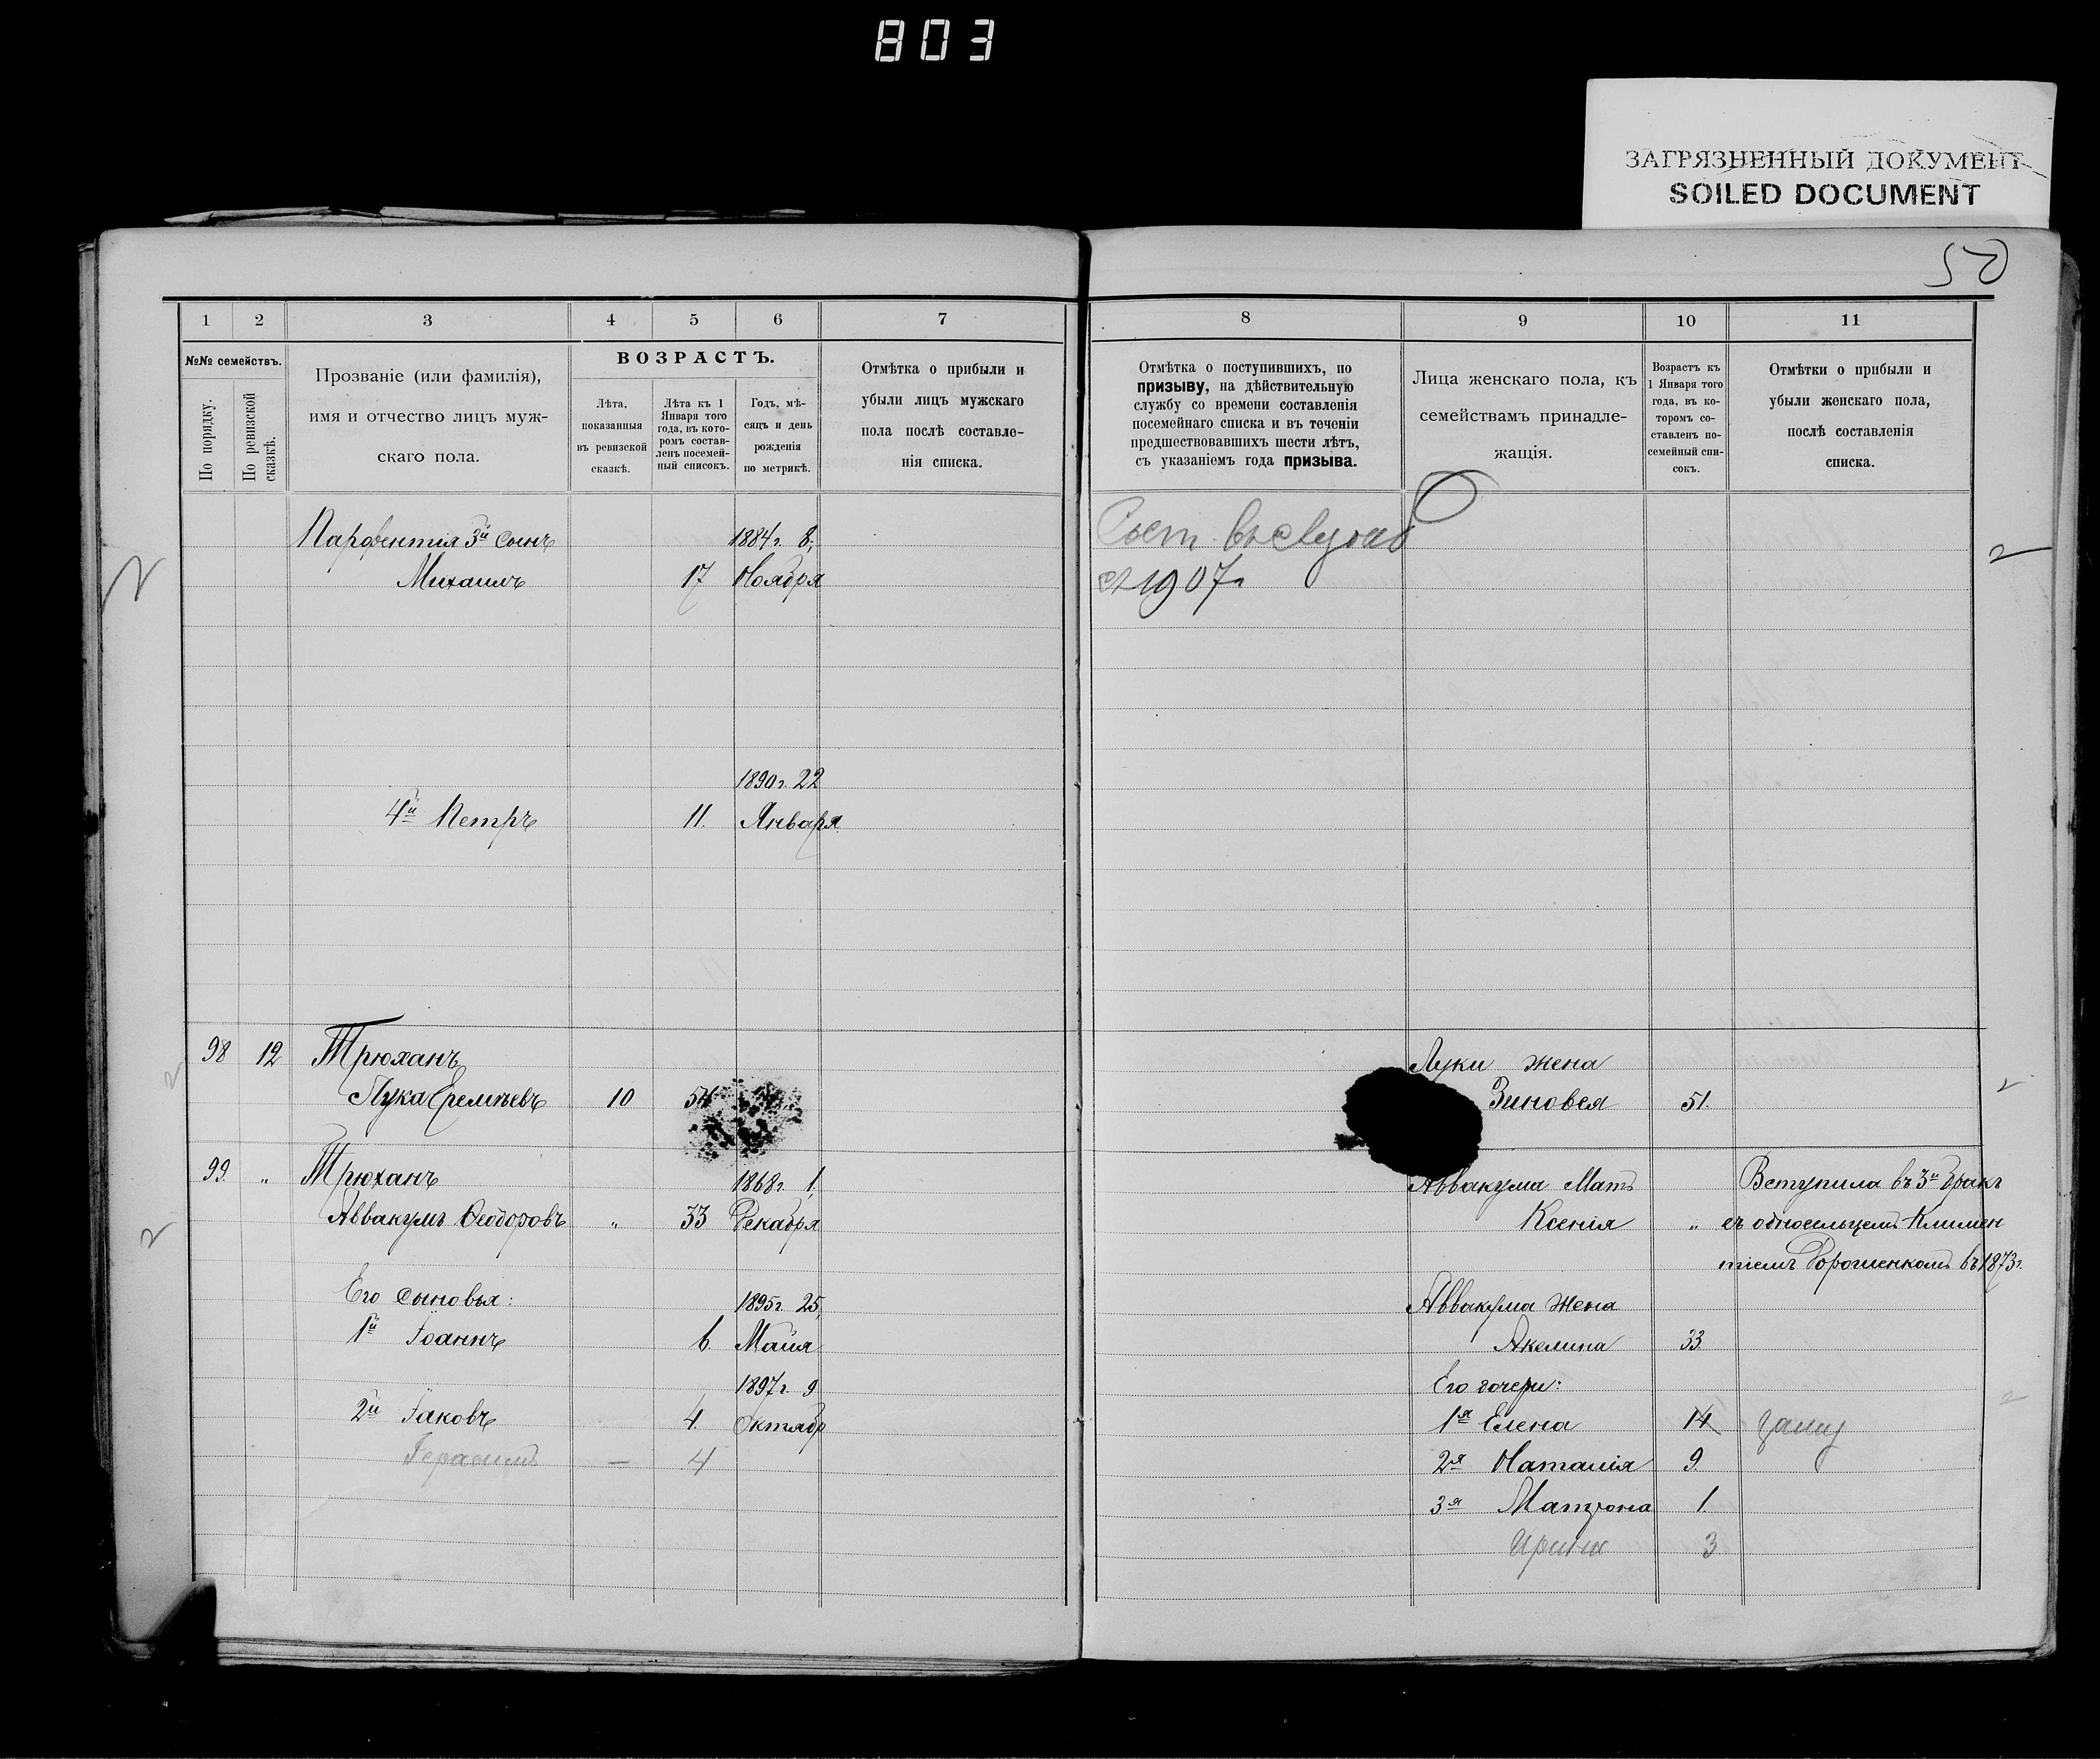 803
ЗАГРЯЗНЕННЫЙ ДОКУМЕНТ
SOILED DOCUMENT
50
1 2 3 4 5 6 7
№№ семействъ.
По порядку.
По ревизской сказкѣ.
Прозваніе (или фамилія),
имя и отчество лицъ муж-
скаго пола.
ВОЗРАСТЪ.
Лѣта,
показанныя
въ ревизской
сказкѣ.
Лѣта къ 1
Января того
года, въ кото-
ромъ состав-
ленъ посемей-
ный списокъ.
Годъ, мѣ-
сяцъ и день
рожденія
по метрикѣ.
Отмѣтка о прибыли и
убыли лицъ мужскаго
пола послѣ составле-
нія списка.
Парфентія 3й сынъ 1884 г. 8,
Михаилъ 17 Ноября
1890 г. 22
4й Петръ 11. Января
98 12 Трюханъ
Лука Еремѣевъ 10 54
99. „ Трюханъ 1868 г. 1,
Аввакумъ Ѳеодоровъ „ 33 Декабря
Его сыновья: 1895 г. 25,
1й Іоаннъ 6. Майя
1897 г. 9
2й Іаковъ 4. Октябр
Герасимъ — 4
8 9 10 11
Отмѣтка о поступившихъ, по
призыву, на дѣйствительную
службу со времени составленія
посемейнаго списка и въ теченіи
предшествовавшихъ шести лѣтъ,
съ указаніемъ года призыва.
Лица женскаго пола, къ
семействамъ принадле-
жащія.
Возрастъ къ
1 Января того
года, въ ко-
торомъ со-
ставленъ по-
семейный спи-
сокъ.
Отмѣтки о прибыли и
убыли женскаго пола,
послѣ составленія
списка.
Сост.
1907 г
Луки жена
Зиновея 51.
Аввакума Мать Вступила въ 3й бракъ
Ксенія „ съ односельцемъ Климен
тіемъ Дорошенкомъ въ 1873 г.
Аввакума жена
Акелина 33.
Его дочери:
1я Елена 14 замуж
2я Наталія 9.
3я Матрона 1.
Ирина 3